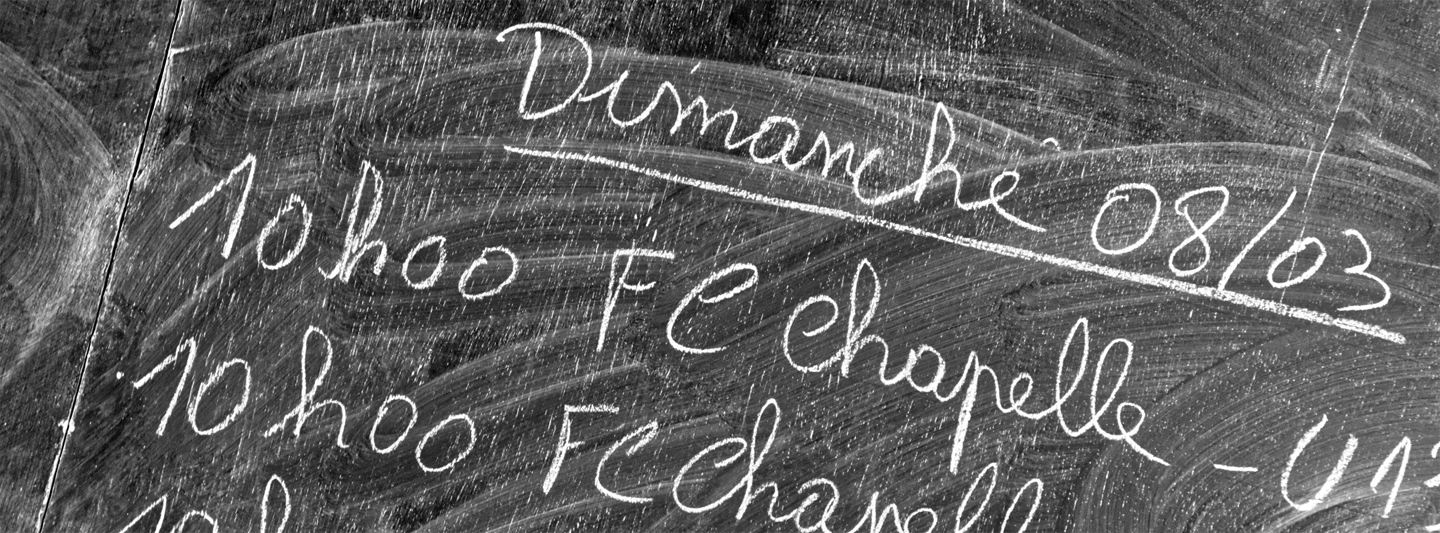 Dimanchê 08/03
10h00 FC Chapelle - U13
10h00 FC Chapell
10h